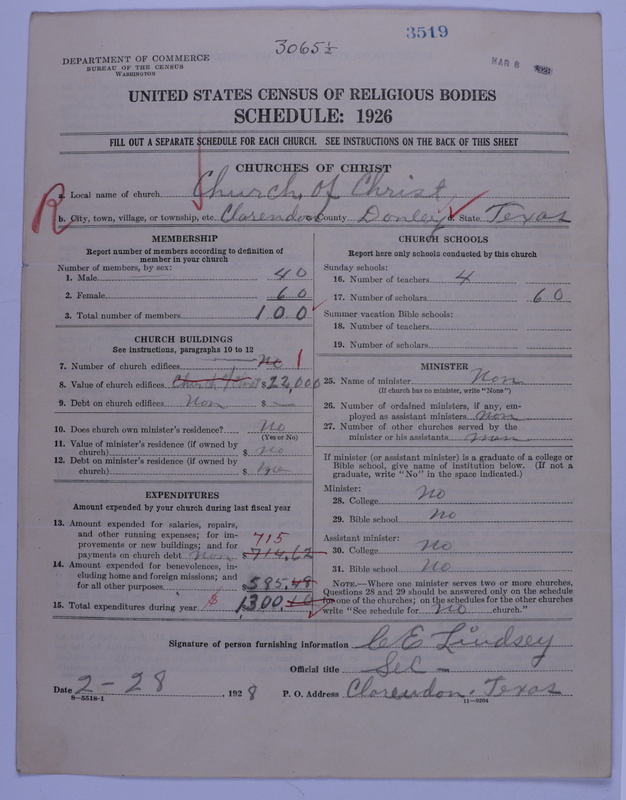 3519
3065½
MAR 8
DEPARTMENT OF COMMERCE
BUREAU OF THE CENSUS
WASHINGTON
UNITED STATES CENSUS OF RELIGIOUS BODIES
SCHEDULE: 1926
FILL OUT A SEPARATE SCHEDULE FOR EACH CHURCH. SEE INSTRUCTIONS ON THE BACK OF THIS SHEET
CHURCHES OF CHRIST
a. Local name of church Church of Christ
R b. City, town, village, or township, etc. Clarendon c. County Donley d. State Texas
MEMBERSHIP
Report number of members according to definition of
member in your church
Number of members, by sex:
1. Male 40
2. Female 60
3. Total number of members 100
CHURCH BUILDINGS
See instructions, paragraphs 10 to 12
7. Number of church edifices No 1
8. Value of church edifices $22,000
9. Debt on church edifices Non $ —
10. Does church own minister's residence? No
(Yes or No)
11. Value of minister's residence (if owned by
church) $ no
12. Debt on minister's residence (if owned by
church) $
EXPENDITURES
Amount expended by your church during last fiscal year
13. Amount expended for salaries, repairs,
and other running expenses; for im- 715
provements or new buildings; and for
payments on church debt Non $714.62
14. Amount expended for benevolences, in-
cluding home and foreign missions; and
for all other purposes $585.48
15. Total expenditures during year $ 1300.10
CHURCH SCHOOLS
Report here only schools conducted by this church
Sunday schools:
16. Number of teachers 4
17. Number of scholars 60
Summer vacation Bible schools:
18. Number of teachers
19. Number of scholars
MINISTER
25. Name of minister Non
(If church has no minister, write "None")
26. Number of ordained ministers, if any, em-
ployed as assistant ministers non
27. Number of other churches served by the
minister or his assistants
If minister (or assistant minister) is a graduate of a college or
Bible school, give name of institution below. (If not a
graduate, write "No" in the space indicated.)
Minister:
28. College no
29. Bible school no
Assistant minister:
30. College no
31. Bible school no
NOTE.—Where one minister serves two or more churches,
Questions 28 and 29 should be answered only on the schedule
for one of the churches; on the schedules for the other churches
write "See schedule for no church."
Signature of person furnishing information C E Lindsey
Official title Sec -
Date 2-28, 1928 P. O. Address Clarendon, Texas
8-5518-1 11-9204